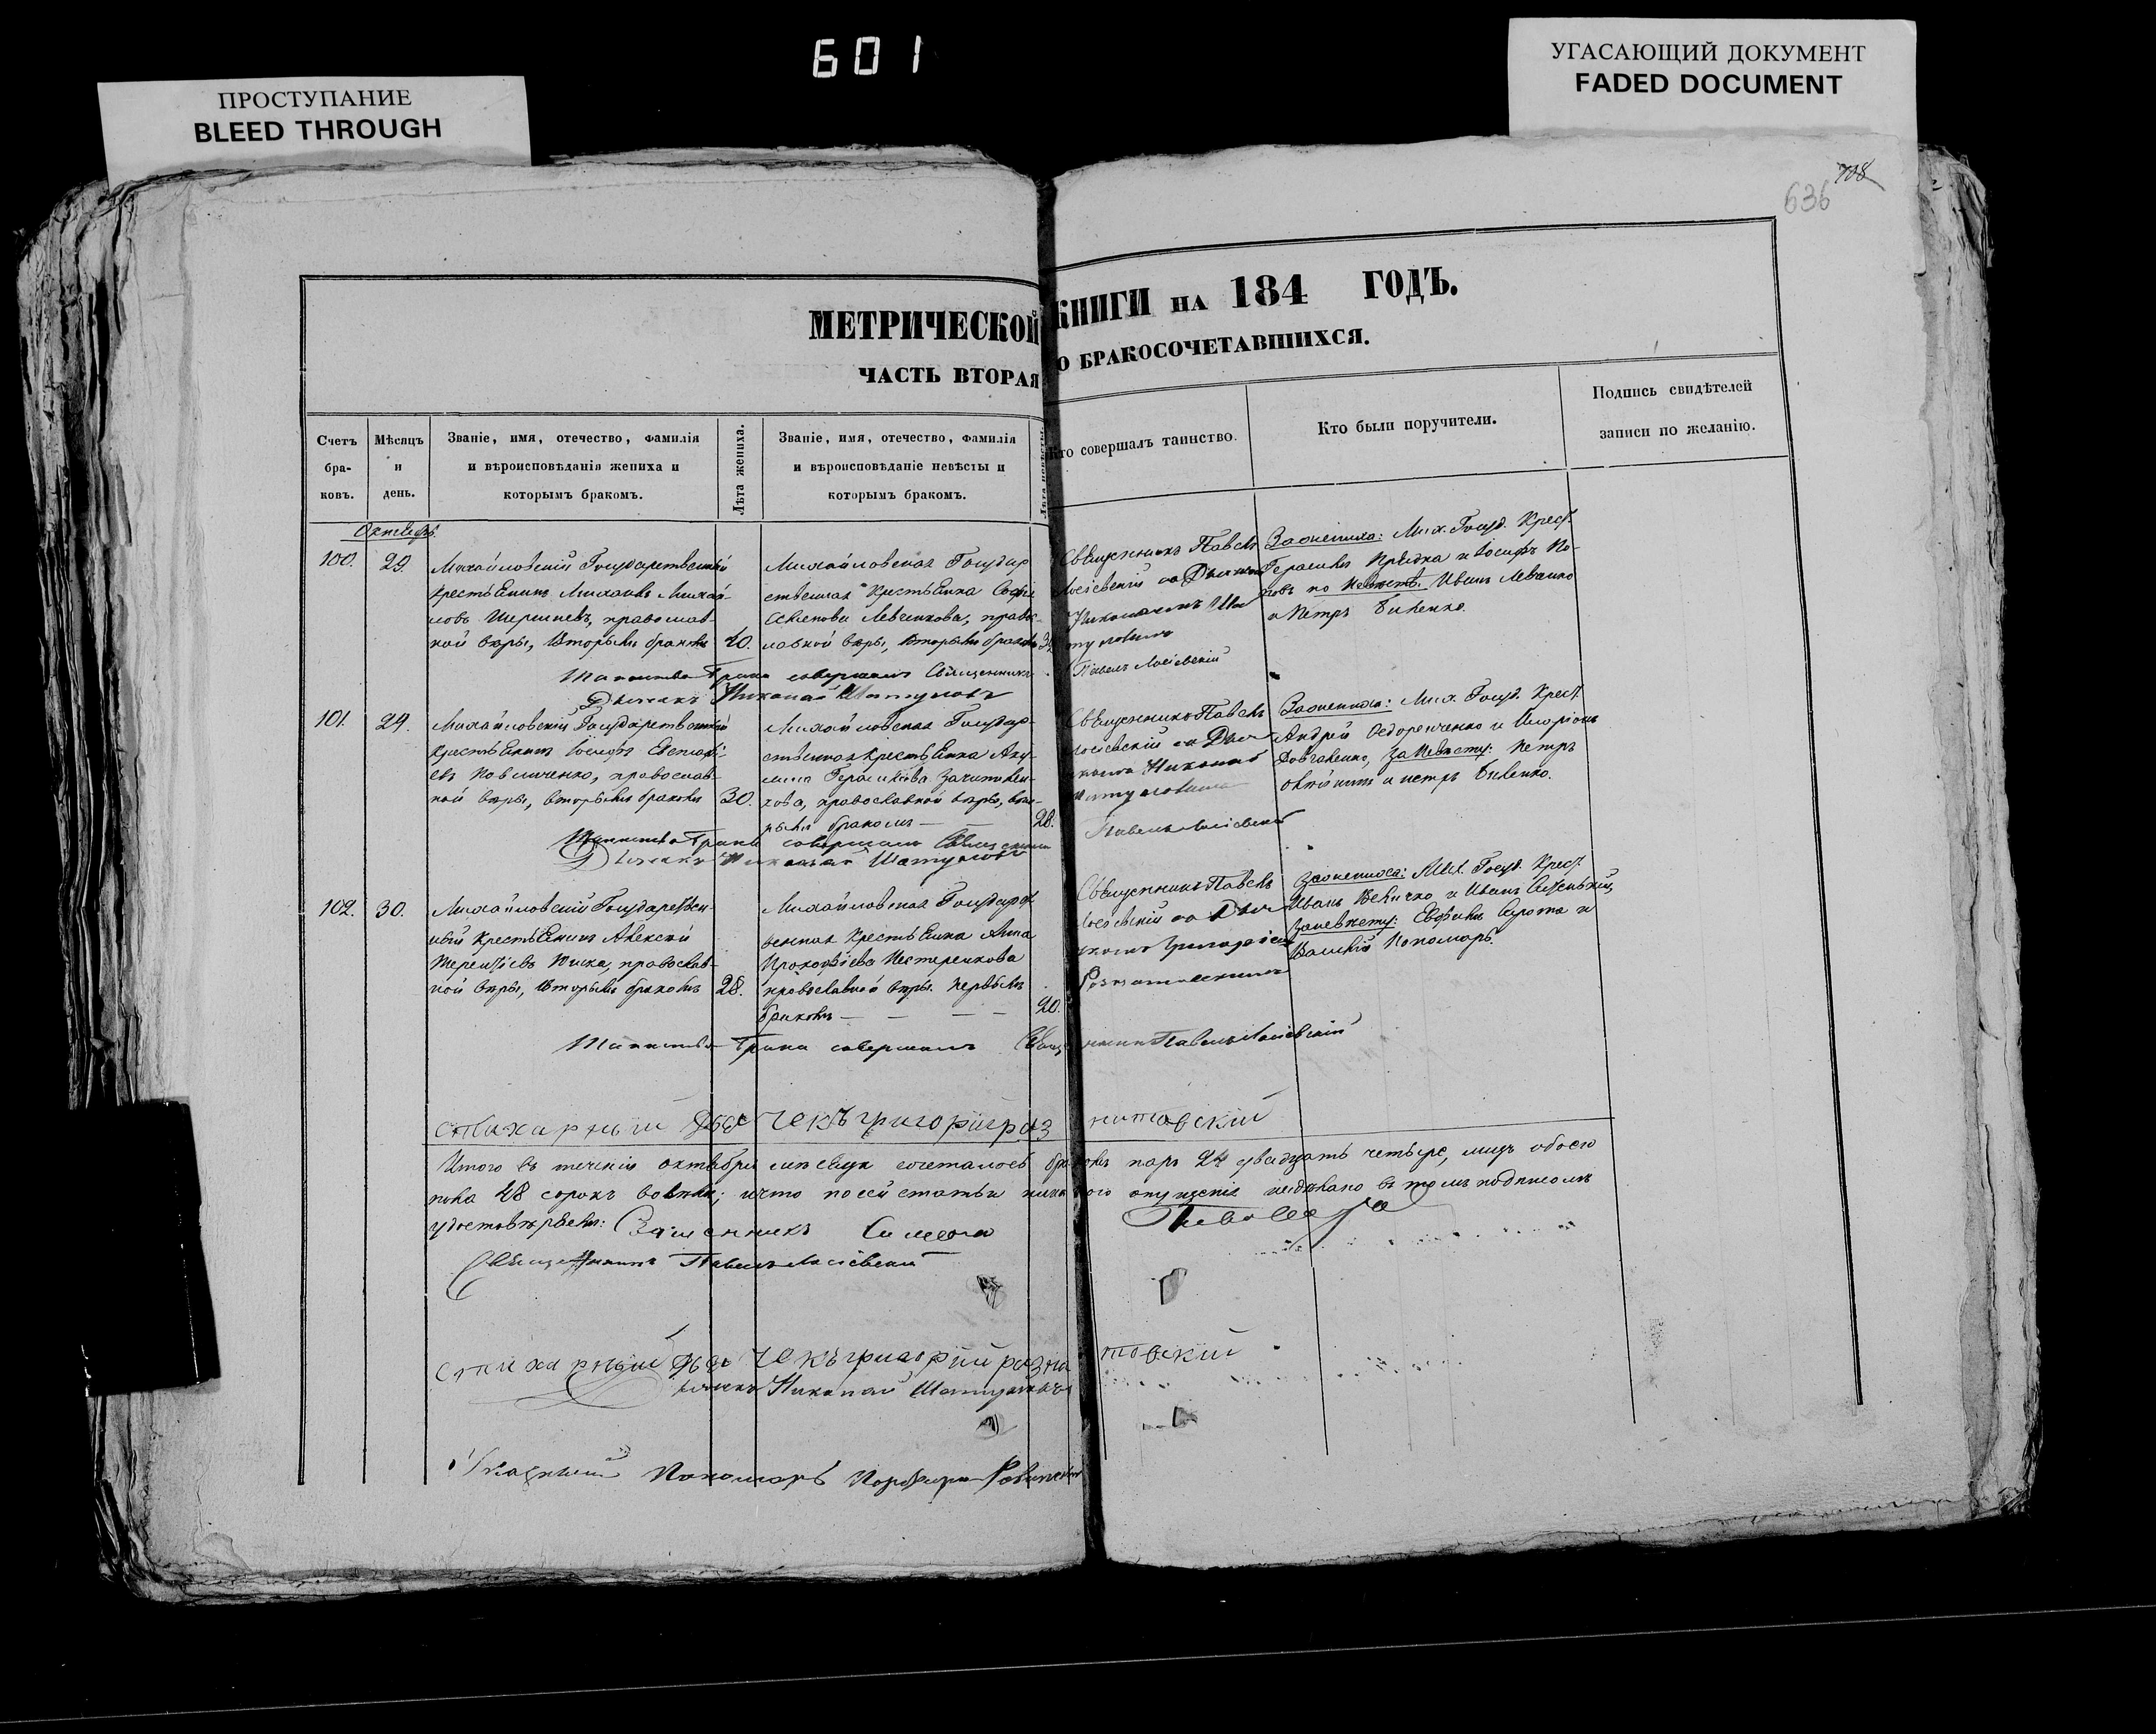 601
ПРОСТУПАНИЕ
BLEED THROUGH
УГАСАЮЩИЙ ДОКУМЕНТ
FADED DOCUMENT
708
636
МЕТРИЧЕСКОЙ КНИГИ НА 184 ГОДЪ.
ЧАСТЬ ВТОРАЯ О БРАКОСОЧЕТАВШИХСЯ.
Счетъ
бра-
ковъ.
Мѣсяцъ
и
день.
Званіе, имя, отечество, фамилія
и вѣроисповѣданія жениха и
которымъ бракомъ.
Лѣта жениха.
Званіе, имя, отечество, фамилія
и вѣроисповѣданіе невѣсты и
которымъ бракомъ.
Лѣта невѣсты.
Кто совершалъ таинство.
Кто были поручители.
Подпись свидѣтелей
записи по желанію.
Октябрь
100.
29.
Михайловскій Государственный
крестьянинъ Михаилъ Михай-
ловъ православ-
ной вѣры, вторымъ бракомъ
40.
Михайловская Государ
ственная крестьянка Софія
Левченкова, правос-
лавной вѣры, вторымъ бракомъ
Священникъ Павелъ
Лосіевскій съ Дьяч
Николаемъ Ша
туловымъ
За жениха: Мих. Госуд. Крест.
Герасимъ и Іосифъ По-
повъ по невѣстѣ. Иванъ Левченко
и Петръ Биленко.
Таинство брака совершалъ Священникъ Павелъ Лосіевскій
Дьячекъ Николай Шатуловъ
101.
29.
Михайловскій Государственный
крестьянинъ Іосифъ
евъ православ-
ной вѣры, вторымъ бракомъ
30.
Михайловская Государ-
ственная крестьянка Аку-
лина Герасимова
кова, православной вѣры, вто-
рымъ бракомъ
28.
Священникъ Павелъ
Лосіевскій съ Дья
чкомъ Николаемъ
Шатуловымъ
За жениха: Мих. Госуд. Крест.
Андрей Федорченко и Иларіонъ
Довгаленко, за невѣсту: Петръ
и Петръ Биленко.
Таинство брака совершалъ Священникъ Павелъ Лосіевскій
Дьячекъ Николай Шатуловъ
102.
30.
Михайловскій Государствен-
ный крестьянинъ Алексѣй
Терентіевъ православ-
ной вѣры, вторымъ бракомъ
28.
Михайловская Государст
венная крестьянка Анна
Прокофіева Нестеренкова
православной вѣры первымъ
бракомъ
20.
Священникъ Павелъ
Лосіевскій съ Дья
чкомъ Григоріемъ
Розната́вскимъ
За жениха: Мих. Госуд. Крест.
Иванъ Величко и Иванъ
За невѣсту: Ефимъ Сирота и
Василій Пономарь.
Таинство брака совершалъ Священникъ Павелъ Лосіевскій
стихарный дьячекъ григорій разнатовскій
Итого въ теченіи октября мѣсяца сочеталось браковъ паръ 24 двадцать четыре, лицъ обоего
пола 48 сорокъ восемь; и что по сей статьи никакого опущенія недѣлано въ томъ подписомъ
удостовѣряемъ: Священникъ Симеонъ
Священникъ Павелъ Лосіевскій
стихарный дьячекъ григорій разнатовскій
дьячекъ Николай Шатуловъ
Указный Пономарь Порфирій